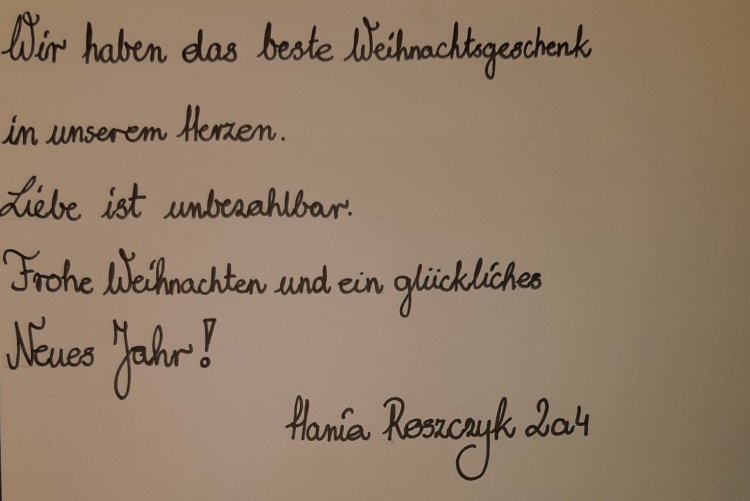 Wir haben das beste Weihnachtsgeschenk
in unserem Herzen.
Liebe ist unbezahlbar.
Frohe Weihnachten und ein glückliches
Neues Jahr!
Hania Roszczyk 2a4